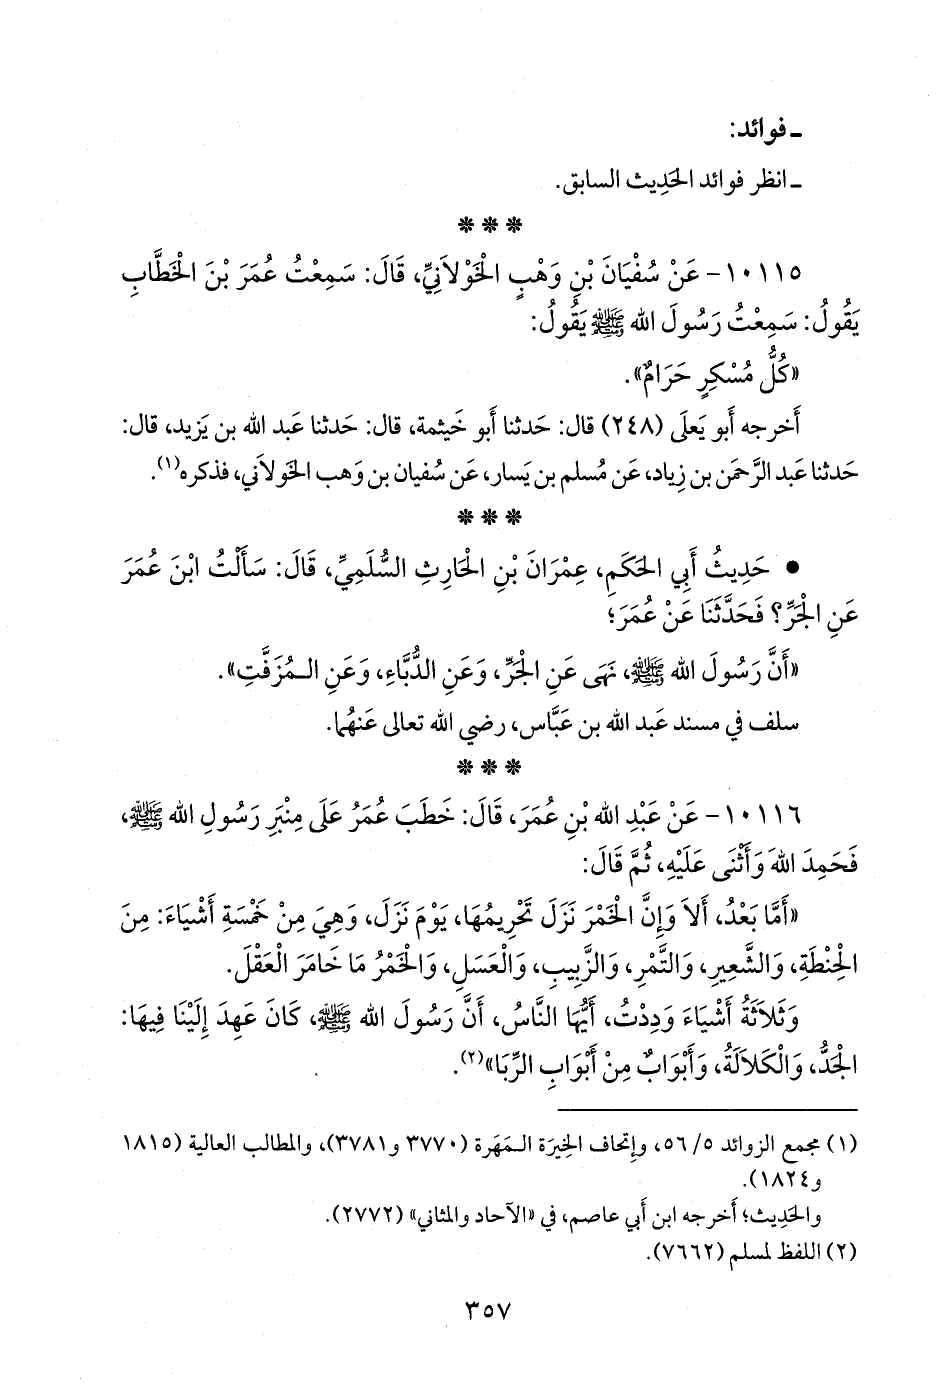 ـ فوائد:
ـ انظر فوائد الحَدِيث السابق.
* * *
١٠١١٥ - عَنْ سُفْيَانَ بْنِ وَهْبٍ الْخَوْلاَنِيِّ، قَالَ: سَمِعْتُ عُمَرَ بْنَ الْخَطَّابِ
يَقُولُ: سَمِعْتُ رَسُولَ الله ﷺ يَقُولُ:
«كُلُّ مُسْكِرٍ حَرَامٌ».
أَخرجه أَبو يَعلَى (٢٤٨) قال: حَدثنا أَبو خَيثمة، قال: حَدثنا عَبد الله بن يَزيد، قال:
حَدثنا عَبد الرَّحمَن بن زِياد، عَن مُسلم بن يَسار، عَن سُفيان بن وَهب الخَولاَني، فذكره(١).
* * *
• حَدِيثُ أَبِي الحَكَمِ، عِمْرَانَ بْنِ الْحَارِثِ السُّلَمِيِّ، قَالَ: سَأَلْتُ ابْنَ عُمَرَ
عَنِ الْجَرِّ؟ فَحَدَّثَنَا عَنْ عُمَرَ؛
«أَنَّ رَسُولَ الله ﷺ، نَهَى عَنِ الْجَرِّ، وَعَنِ الدُّبَّاءِ، وَعَنِ الـمُزَفَّتِ».
سلف في مسند عَبد الله بن عَبَّاس، رضي الله تعالى عَنهُما.
* * *
١٠١١٦ - عَنْ عَبْدِ الله بْنِ عُمَرَ، قَالَ: خَطَبَ عُمَرُ عَلَى مِنْبَرِ رَسُولِ الله ﷺ،
فَحَمِدَ اللهَ وَأَثْنَى عَلَيْهِ، ثُمَّ قَالَ:
«أَمَّا بَعْدُ، أَلاَ وَإِنَّ الْخَمْرَ نَزَلَ تَحْرِيمُهَا، يَوْمَ نَزَلَ، وَهِيَ مِنْ خَمْسَةِ أَشْيَاءَ: مِنَ
الْحِنْطَةِ، وَالشَّعِيرِ، وَالتَّمْرِ، وَالزَّبِيبِ، وَالْعَسَلِ، وَالْخَمْرُ مَا خَامَرَ الْعَقْلَ.
وَثَلاَثَةُ أَشْيَاءَ وَدِدْتُ، أَيُّهَا النَّاسُ، أَنَّ رَسُولَ الله ﷺ، كَانَ عَهِدَ إِلَيْنَا فِيهَا:
الْجَدُّ، وَالْكَلاَلَةُ، وَأَبْوَابٌ مِنْ أَبْوَابِ الرِّبَا»(٢).
(١) مجمع الزوائد ٥/ ٥٦، وإِتحاف الخِيرَة الـمَهَرة (٣٧٧٠ و٣٧٨١)، والمطالب العالية (١٨١٥
و١٨٢٤).
والحَدِيث؛ أَخرجه ابن أَبي عاصم، في «الآحاد والمثاني» (٢٧٧٢).
(٢) اللفظ لمسلم (٧٦٦٢).
٣٥٧